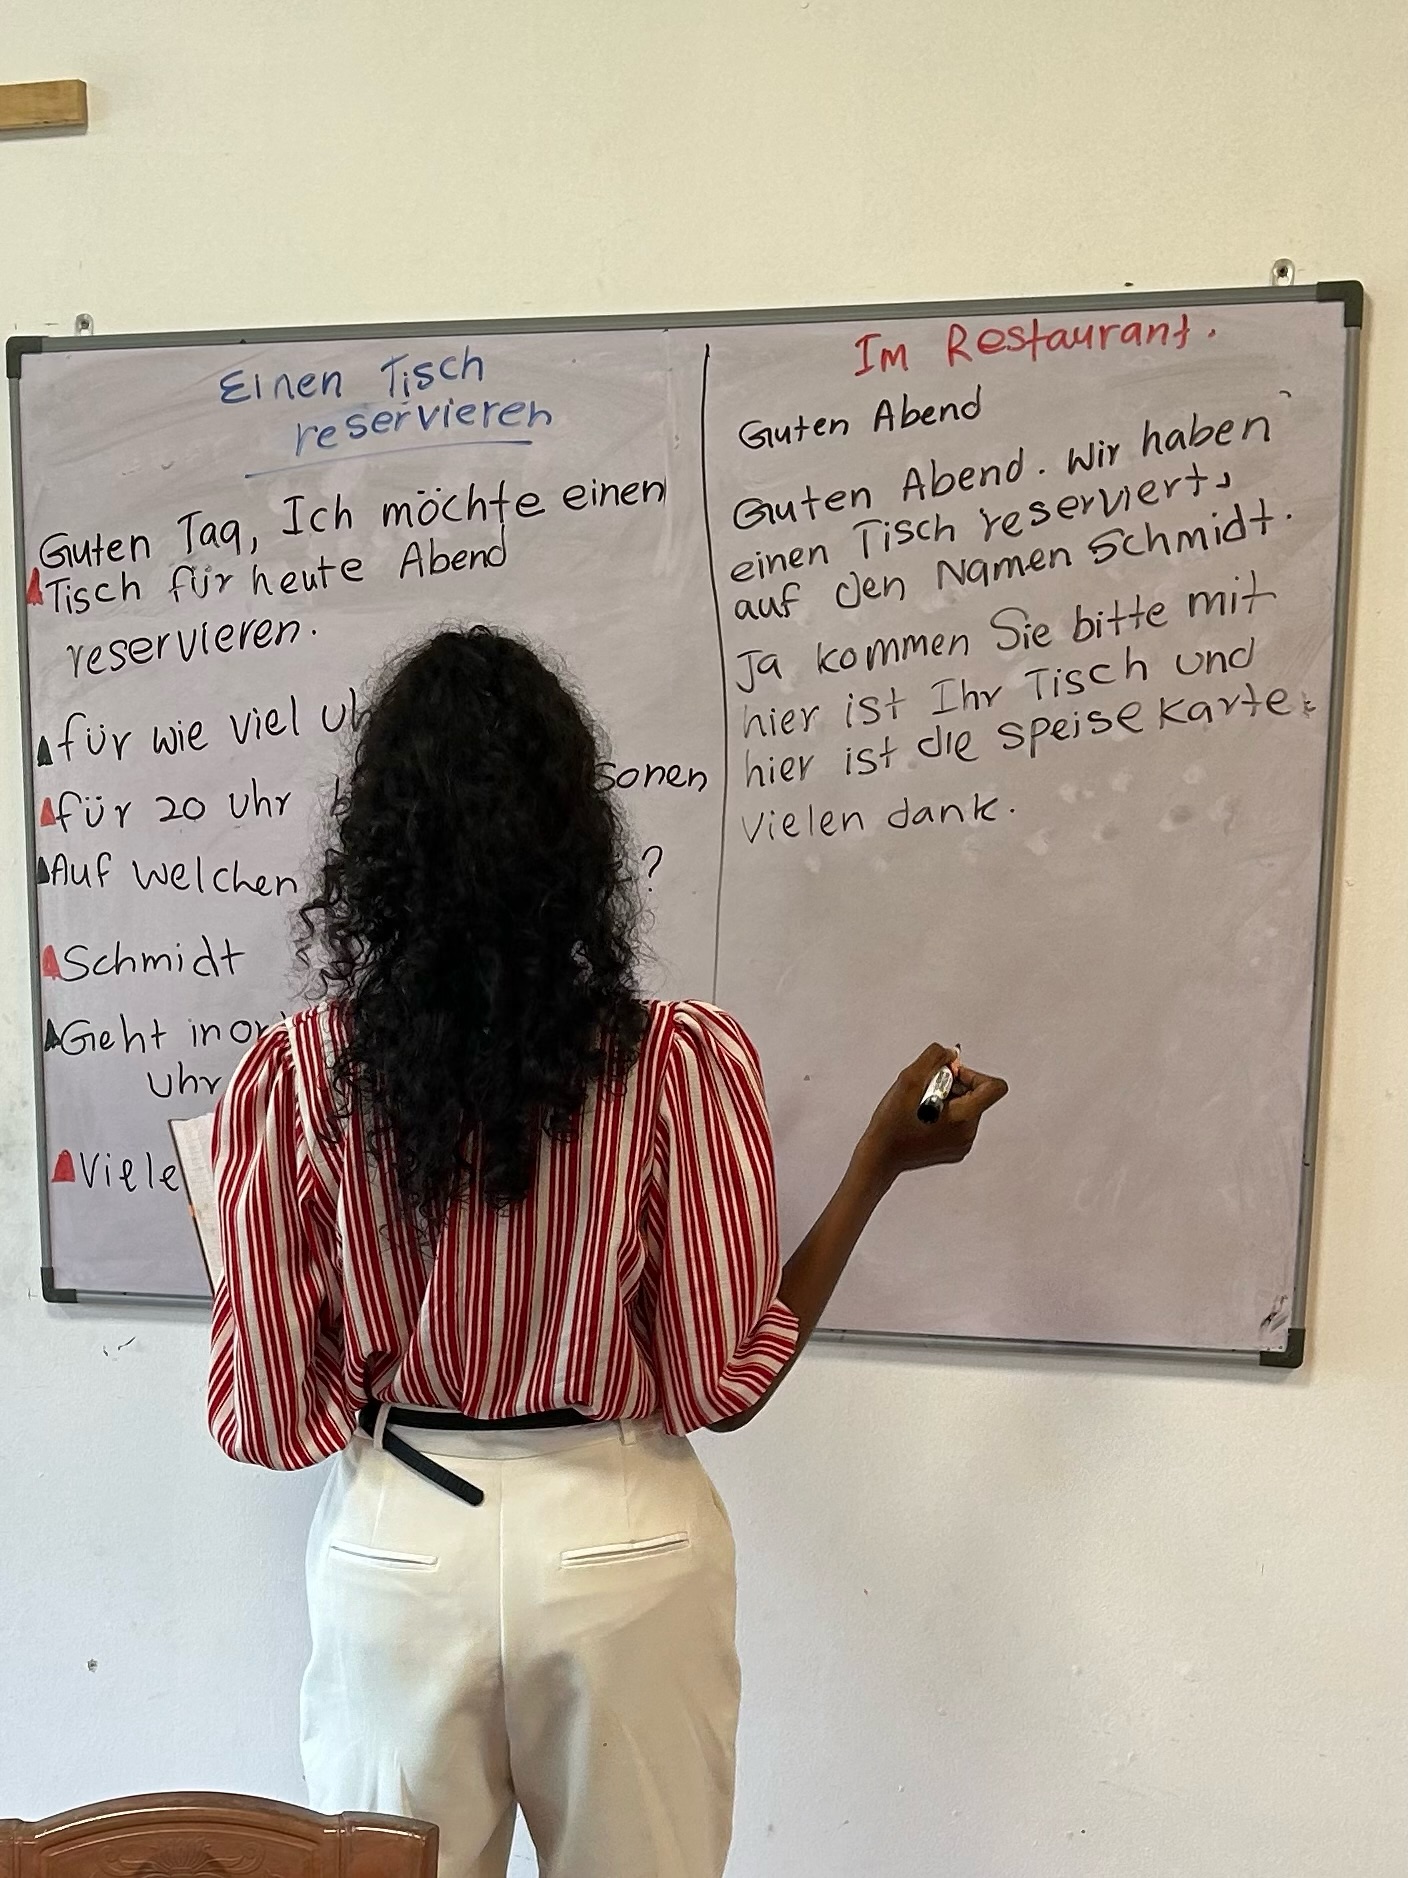 Einen Tisch
reservieren
Guten Tag, Ich möchte einen
Tisch für heute Abend
reservieren.
für wie viel
für 20 Uhr
Auf Welchen ?
Schmidt
Geht in
Uhr
Im Restaurant.
Guten Abend
Guten Abend. Wir haben
einen Tisch reserviert,
auf den Namen Schmidt.
Ja kommen Sie bitte mit
hier ist Ihr Tisch und
hier ist die speisekarte.
vielen dank.